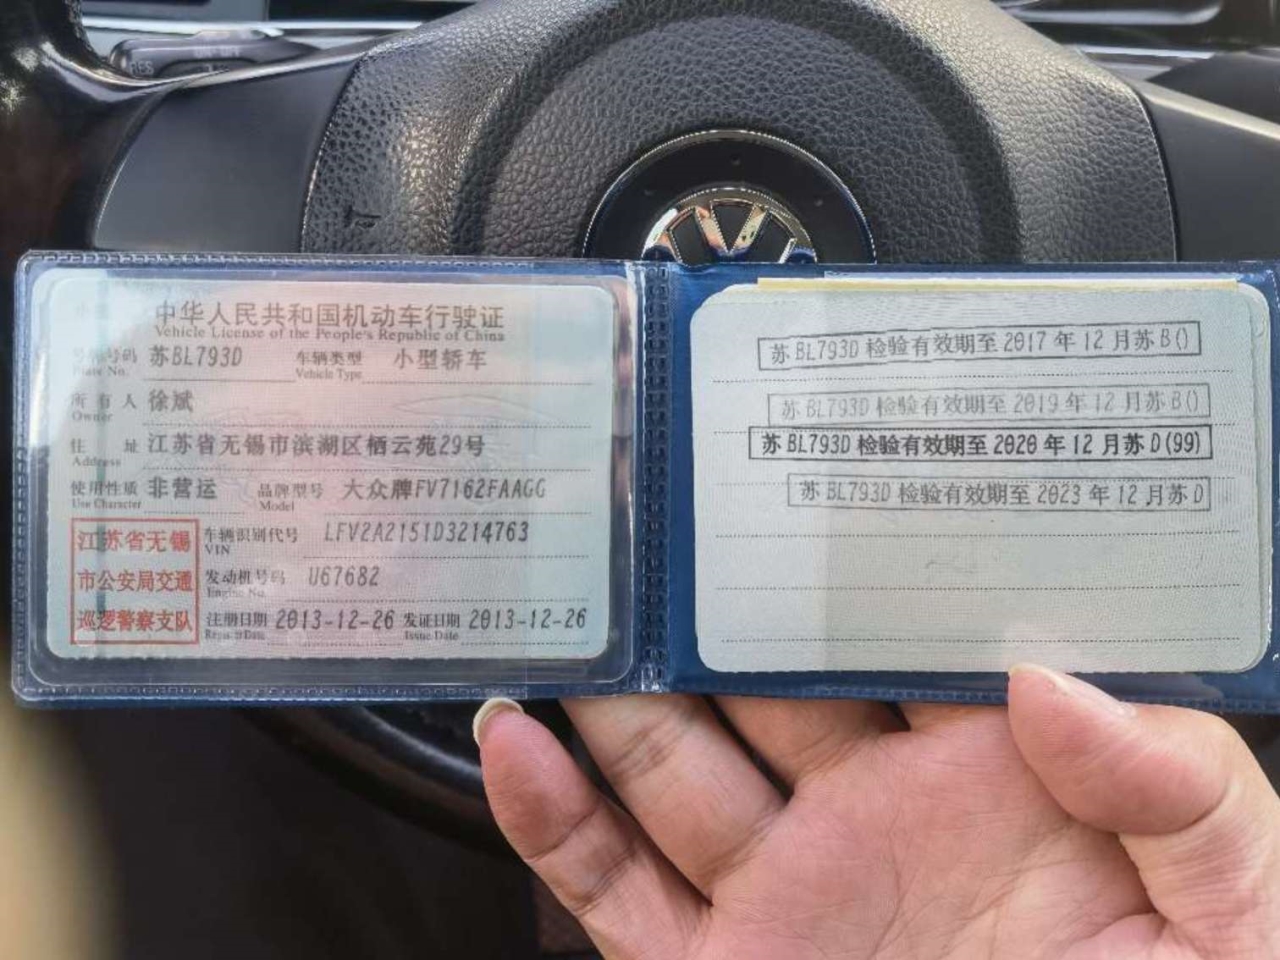 中华人民共和国机动车行驶证
Vehicle License of the People's Republic of China
号牌号码 苏BL793D 车辆类型 小型轿车
Plate No. Vehicle Type
所有人 徐斌
Owner
住址 江苏省无锡市滨湖区栖云苑29号
Address
使用性质 非营运 品牌型号 大众牌FV7162FAAGG
Use Character Model
江苏省无锡
市公安局交通
巡逻警察支队
车辆识别代号 LFV2A2151D3214763
VIN
发动机号码 U67682
Engine No.
注册日期 2013-12-26 发证日期 2013-12-26
Register Date Issue Date
苏BL793D 检验有效期至 2017 年 12 月苏B()
苏BL793D 检验有效期至 2019 年 12 月苏B()
苏BL793D 检验有效期至 2020 年 12 月苏D(99)
苏BL793D 检验有效期至 2023 年 12 月苏D